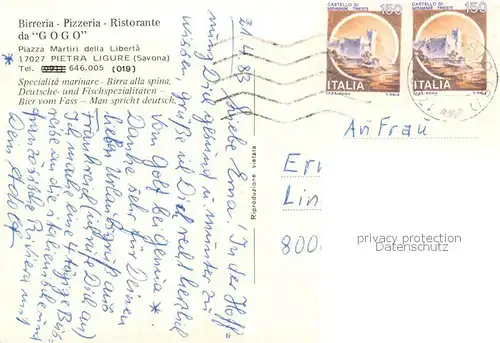 Birreria - Pizzeria - Ristorante
da "GOGO"
Piazza Martiri della Libertà
17027 PIETRA LIGURE (Savona)
Tel. 646.005 (019)
Specialità marinare - Birra alla spina,
Deutsche- und Fischspezialitäten -
Bier vom Fass - Man spricht deutsch.
*
21.4.83 Liebe Erna! In der Hoff=
nung Dich gesund u. munter zu
wissen grüße ich Dich recht herzlich
vom Golf bei Genua *.
Danke sehr für Deinen
lieben Urlaubsgruß aus
Frankreich (ich rief Dich an)
Ich mache eine 4tägige Bus=
reise an die italienische u.
französische Riviera mit
Dein Adolf
Riproduzione vietata
CASTELLO DI
MIRAMARE - TRIESTE
150
ITALIA
CASTELLO DI
MIRAMARE - TRIESTE
150
ITALIA
An Frau
Ern
Lin
800
privacy protection
Datenschutz